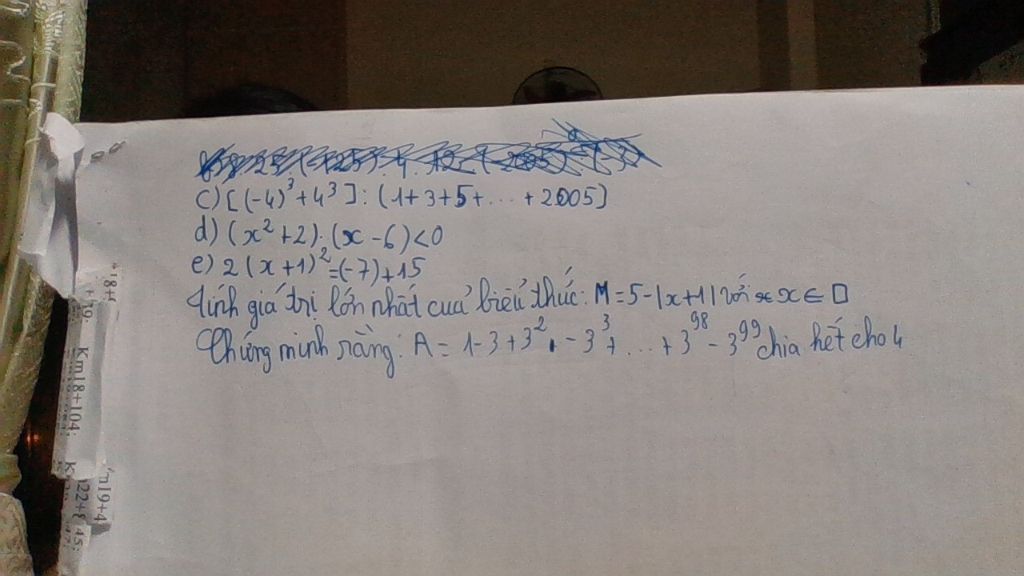 c) [(-4)³ + 4³] : (1+3+5+...+2005]
d) (x² + 2) . (x - 6) < 0
e) 2 (x + 1)² = (-7) + 15
Tính giá trị lớn nhất của biểu thức: M = 5 - |x + 1| với x ∈ □
Chứng minh rằng: A = 1 - 3 + 3² - 3³ + ... + 3⁹⁸ - 3⁹⁹ chia hết cho 4
Km18+104:
m19+4